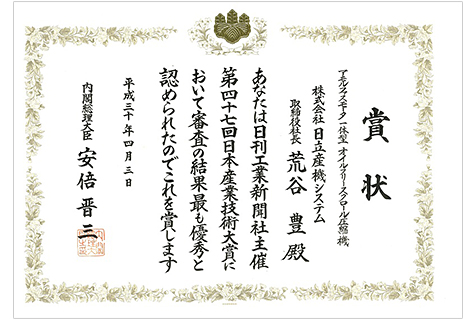 賞状
アモルファスモータ一体型 オイルフリースクロール圧縮機
株式会社 日立産機システム
取締役社長 荒谷 豊 殿
あなたは日刊工業新聞社主催
第四十七回日本産業技術大賞に
おいて審査の結果最も優秀と
認められたのでこれを賞します
平成三十年四月三日
内閣総理大臣 安倍晋三